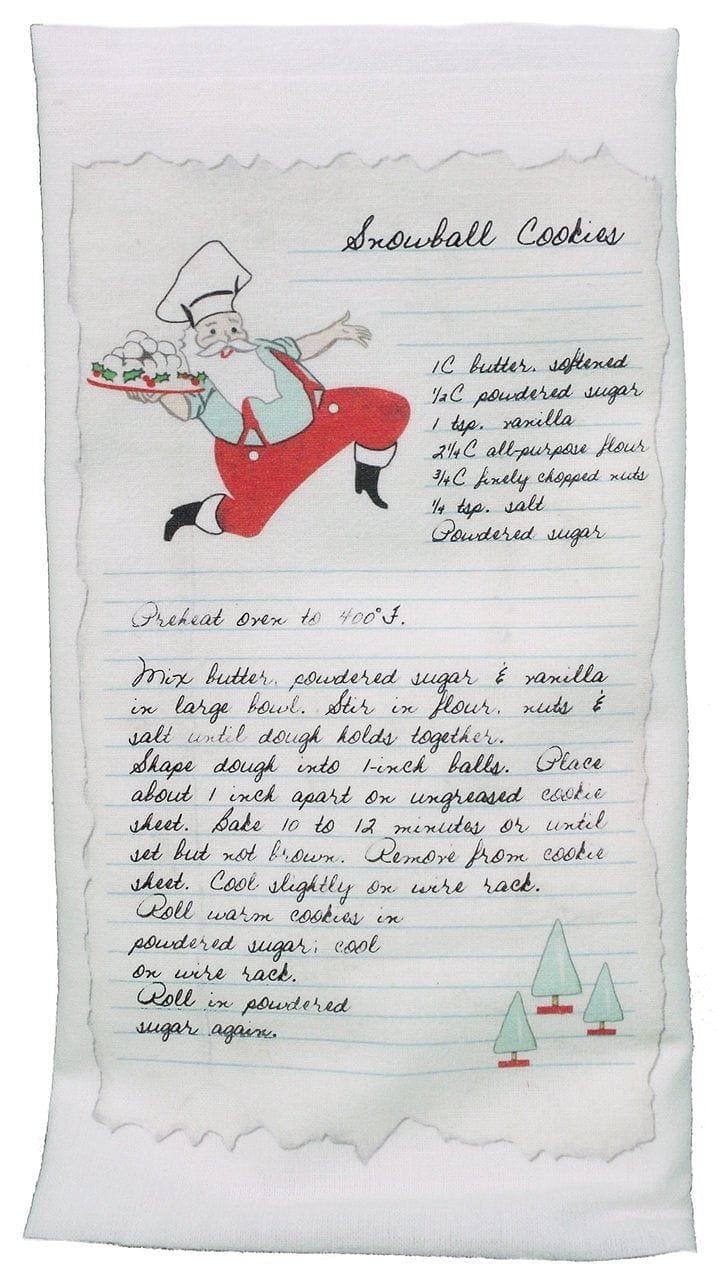 Snowball Cookies
1C butter, softened
½C powdered sugar
1 tsp. vanilla
2¼C all-purpose flour
¾C finely chopped nuts
¼ tsp. salt
Powdered sugar
Preheat oven to 400°F.
Mix butter, powdered sugar & vanilla
in large bowl. Stir in flour, nuts &
salt until dough holds together.
Shape dough into 1-inch balls. Place
about 1 inch apart on ungreased cookie
sheet. Bake 10 to 12 minutes or until
set but not brown. Remove from cookie
sheet. Cool slightly on wire rack.
Roll warm cookies in
powdered sugar; cool
on wire rack.
Roll in powdered
sugar again.